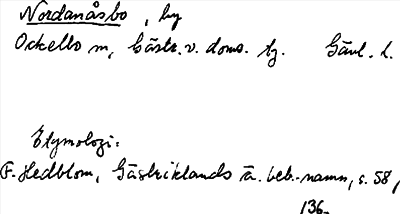 Nordanåsbo, by
Ockelbo sn, Gästr. v. doms. tg. Gävl. l.
Etymologi:
F. Hedblom, Gästriklands ä. beb.-namn, s. 58,
136.